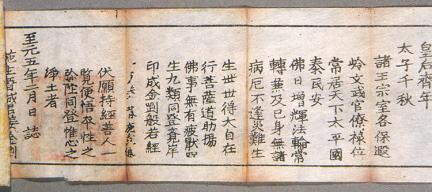 皇后齊年
太子千秋
諸王宗室各保遐
齡文武官僚禄位
常居天下太平國
泰民安
佛日增輝法輪常
轉兼及已身無諸
病厄不逢災難生
生世世得大自在
行菩薩道助揚
佛事無有疲猒四
生九類同登覺岸
印成金剛般若經
伏願持經善人一
覽便悟本性之
弥陁同登惟心之
净土者
至元五年二月日誌